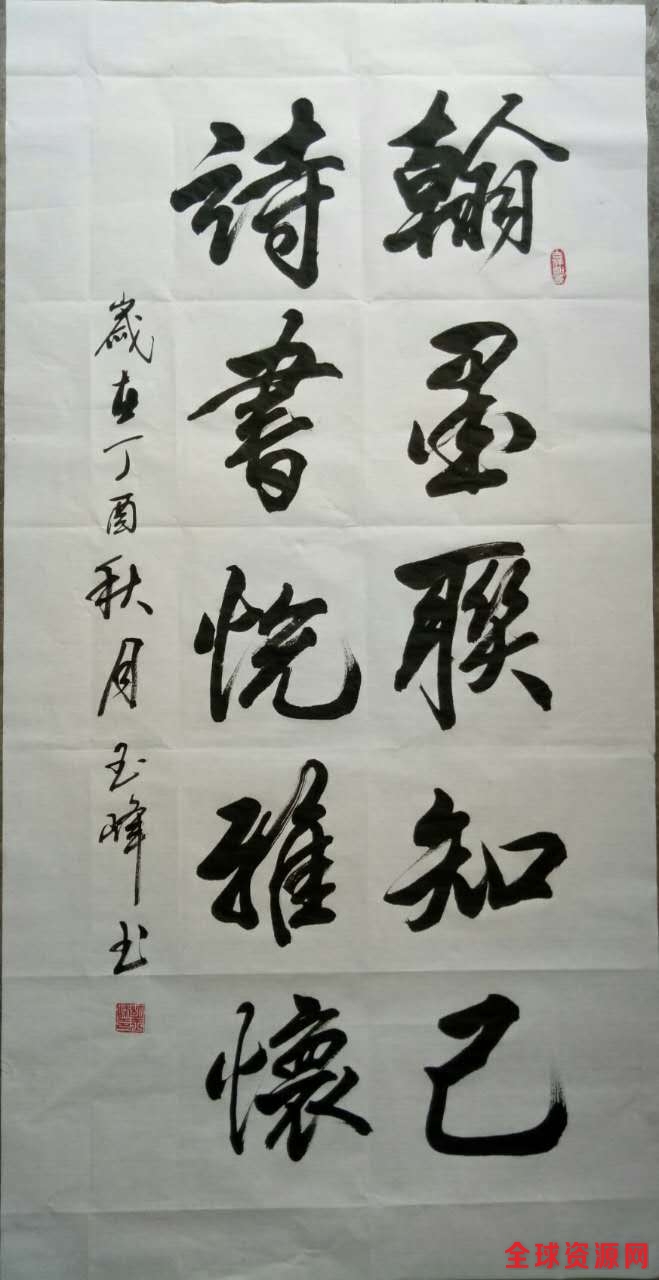 翰墨聯知己
詩書悦雅懷
歲在丁酉秋月玉峰书
全球资源网